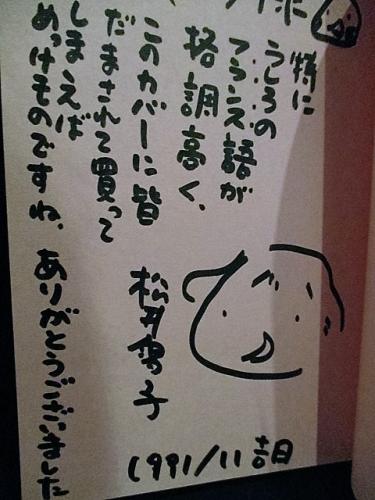 特に
うしろの
フランス語が
格調高く、
このカバーに皆
だまされて買って
しまえば
めっけものですね、ありがとうございました
松井雪子
1991/11 吉日